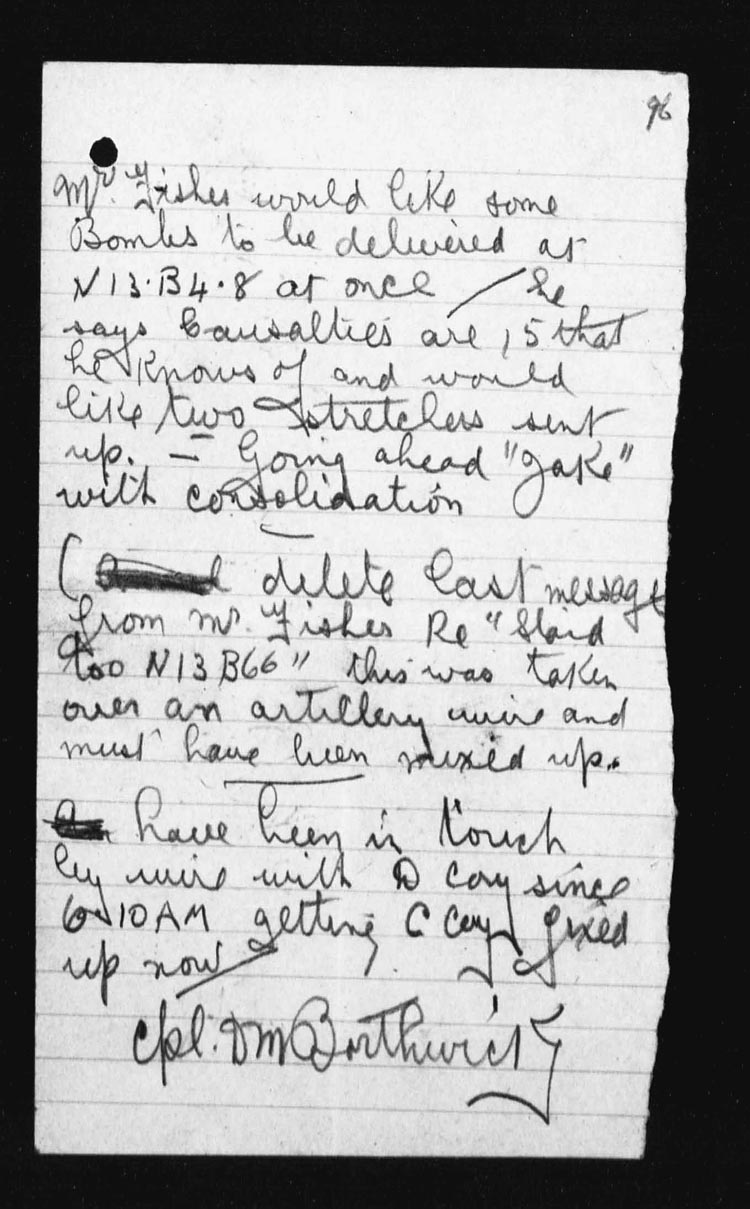 96
Mr. Fisher would like some
Bombs to be delivered at
N13.B4.8 at once / he
says Causalties are 15 that
he knows of and would
like two stretchers sent
up. — Going ahead "Jake"
with consolidation
( delete last message
from Mr. Fisher Re "
too N13 B66" this was taken
over an artillery wire and
must have been mixed up.
have been in touch
by wire with D coy since
6.10AM getting C coy fixed
up now
Cpl. DM Borthwick